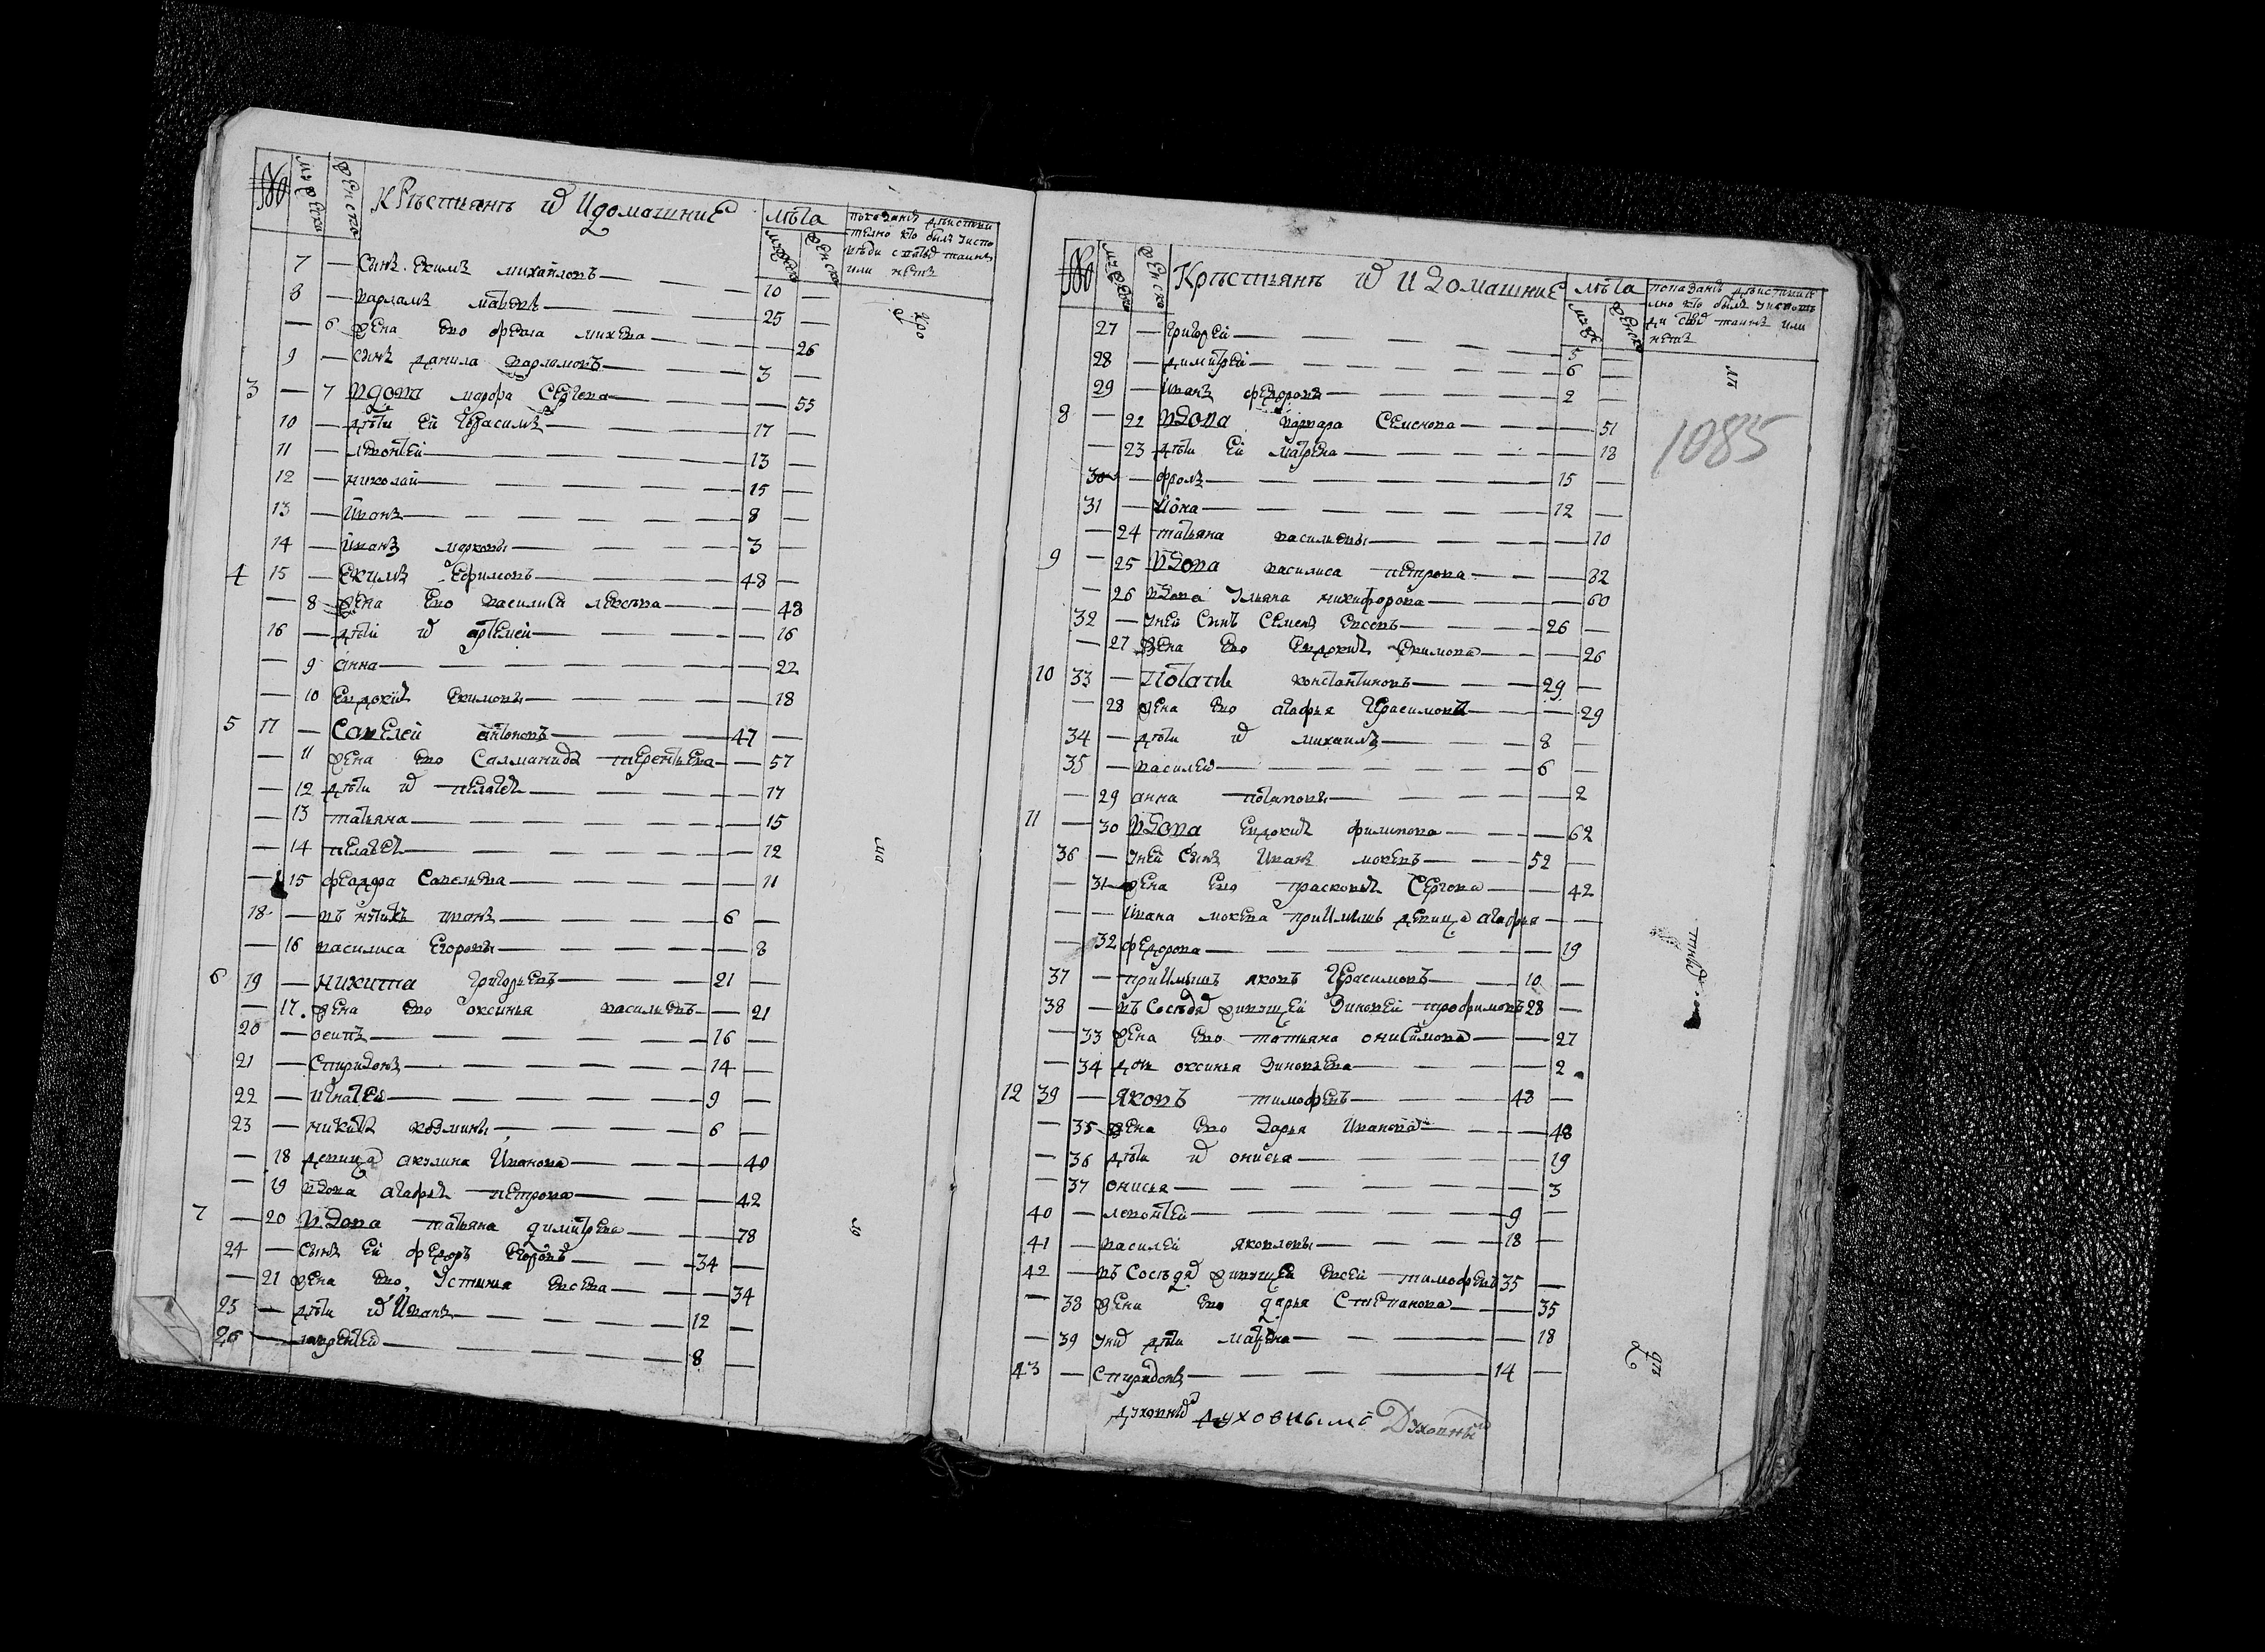 № мужеска женска Крестьянъ и домашние лѣта мужеска женска показание действи
телно кто былъ уиспо
вѣди с҃тыхъ таинъ
или нетъ
7 — сынъ екимъ михайловъ 10 —
8 — варламъ 25 —
— 6 жена ево михева — 26
9 — сынъ данила варламовъ 3 —
3 — 7 вдова марфа сергева — 55
10 — дѣти ей герасимъ 17 —
11 — левонтей 13 —
12 — николай 15 —
13 — иванъ 8 —
14 — иванъ марковы 3 —
4 15 — Екимъ ефимовъ 48 —
— 8 жена ево василиса — 48
16 — дѣти их артемей — 16
— 9 анна — 22
— 10 евдокия екимовы — 18
5 17 — Савелей антоновъ 47 —
— 11 жена ево саламанида терентьева — 57
— 12 дѣти их пелагея — 17
— 13 татьяна — 15
— 14 пелагея — 12
— 15 федора савельева — 11
18 — въ нѣтикъ иванъ 6 —
— 16 василиса егоровы — 8
6 19 — никита григорьевъ 21 —
— 17 жена ево оксинья васильевъ — 21
20 — осипъ 16 —
21 — спиридонъ 14 —
22 — игнатей 9 —
23 — никита козмины 6 —
— 18 девица акулина иванова — 40
— 19 вдова агафья петрова — 42
7 — 20 вдова татьяна димитрева — 78
24 — сынъ ей федоръ егоровъ 34 —
— 21 жена ево устинья евсева — 34
25 — дѣти их иванъ 12 —
26 — лаврентей 8 —
кро
ма
ю
№ мужеска женска Крестьянъ и домашние лѣта мужеска женска показание действите
лно кто былъ уисповѣ
ди с҃тыхъ таинъ или
нетъ
27 — григорей 5 —
28 — димитрей 6 —
29 — иванъ федоровы 2 —
8 — 22 вдова варвара семенова — 51
— 23 дѣти ей матрена — 18
30 — фролъ 15 —
31 — иона 12 —
— 24 татьяна васильевы — 10
9 — 25 вдова василиса петрова — 82
— 26 вдова ульяна никифорова — 60
32 — уней сынъ семенъ евсевъ 26 —
— 27 жена ево евдокия екимова — 26
10 33 — Потапъ константиновъ 29 —
— 28 жена ево агафья герасимова — 29
34 — дѣти их михаилъ 8 —
35 — василей 6 —
— 29 анна потаповы — 2
11 — 30 вдова евдокия филипова — 62
36 — уней сынъ иванъ мокевъ 52 —
— 31 жена ево прасковья сергева — 42
— — ивана мокева приимышъ девица агафья — —
— 32 федорова — 19
37 — приимышъ яковъ герасимовъ 10 —
38 — въ соседяхъ живущей зиновей трофимовъ 28 —
— 33 жена ево татьяна онисимова — 27
— 34 дочь оксинья зиновьева — 2
12 39 — яковъ тимофеевъ 48 —
— 35 жена ево дарья иванова — 48
— 36 дѣти их онисья — 19
— 37 онисья — 3
40 — левонтей 9 —
41 — василей яковлевы 18 —
42 — въ соседяхъ живущей евсей тимофеевъ 35 —
— 38 жена ево дарья степанова — 35
— 39 уних дѣти матрена — 18
43 — спиридонъ 14 —
1085
духовных духовныме Духовных